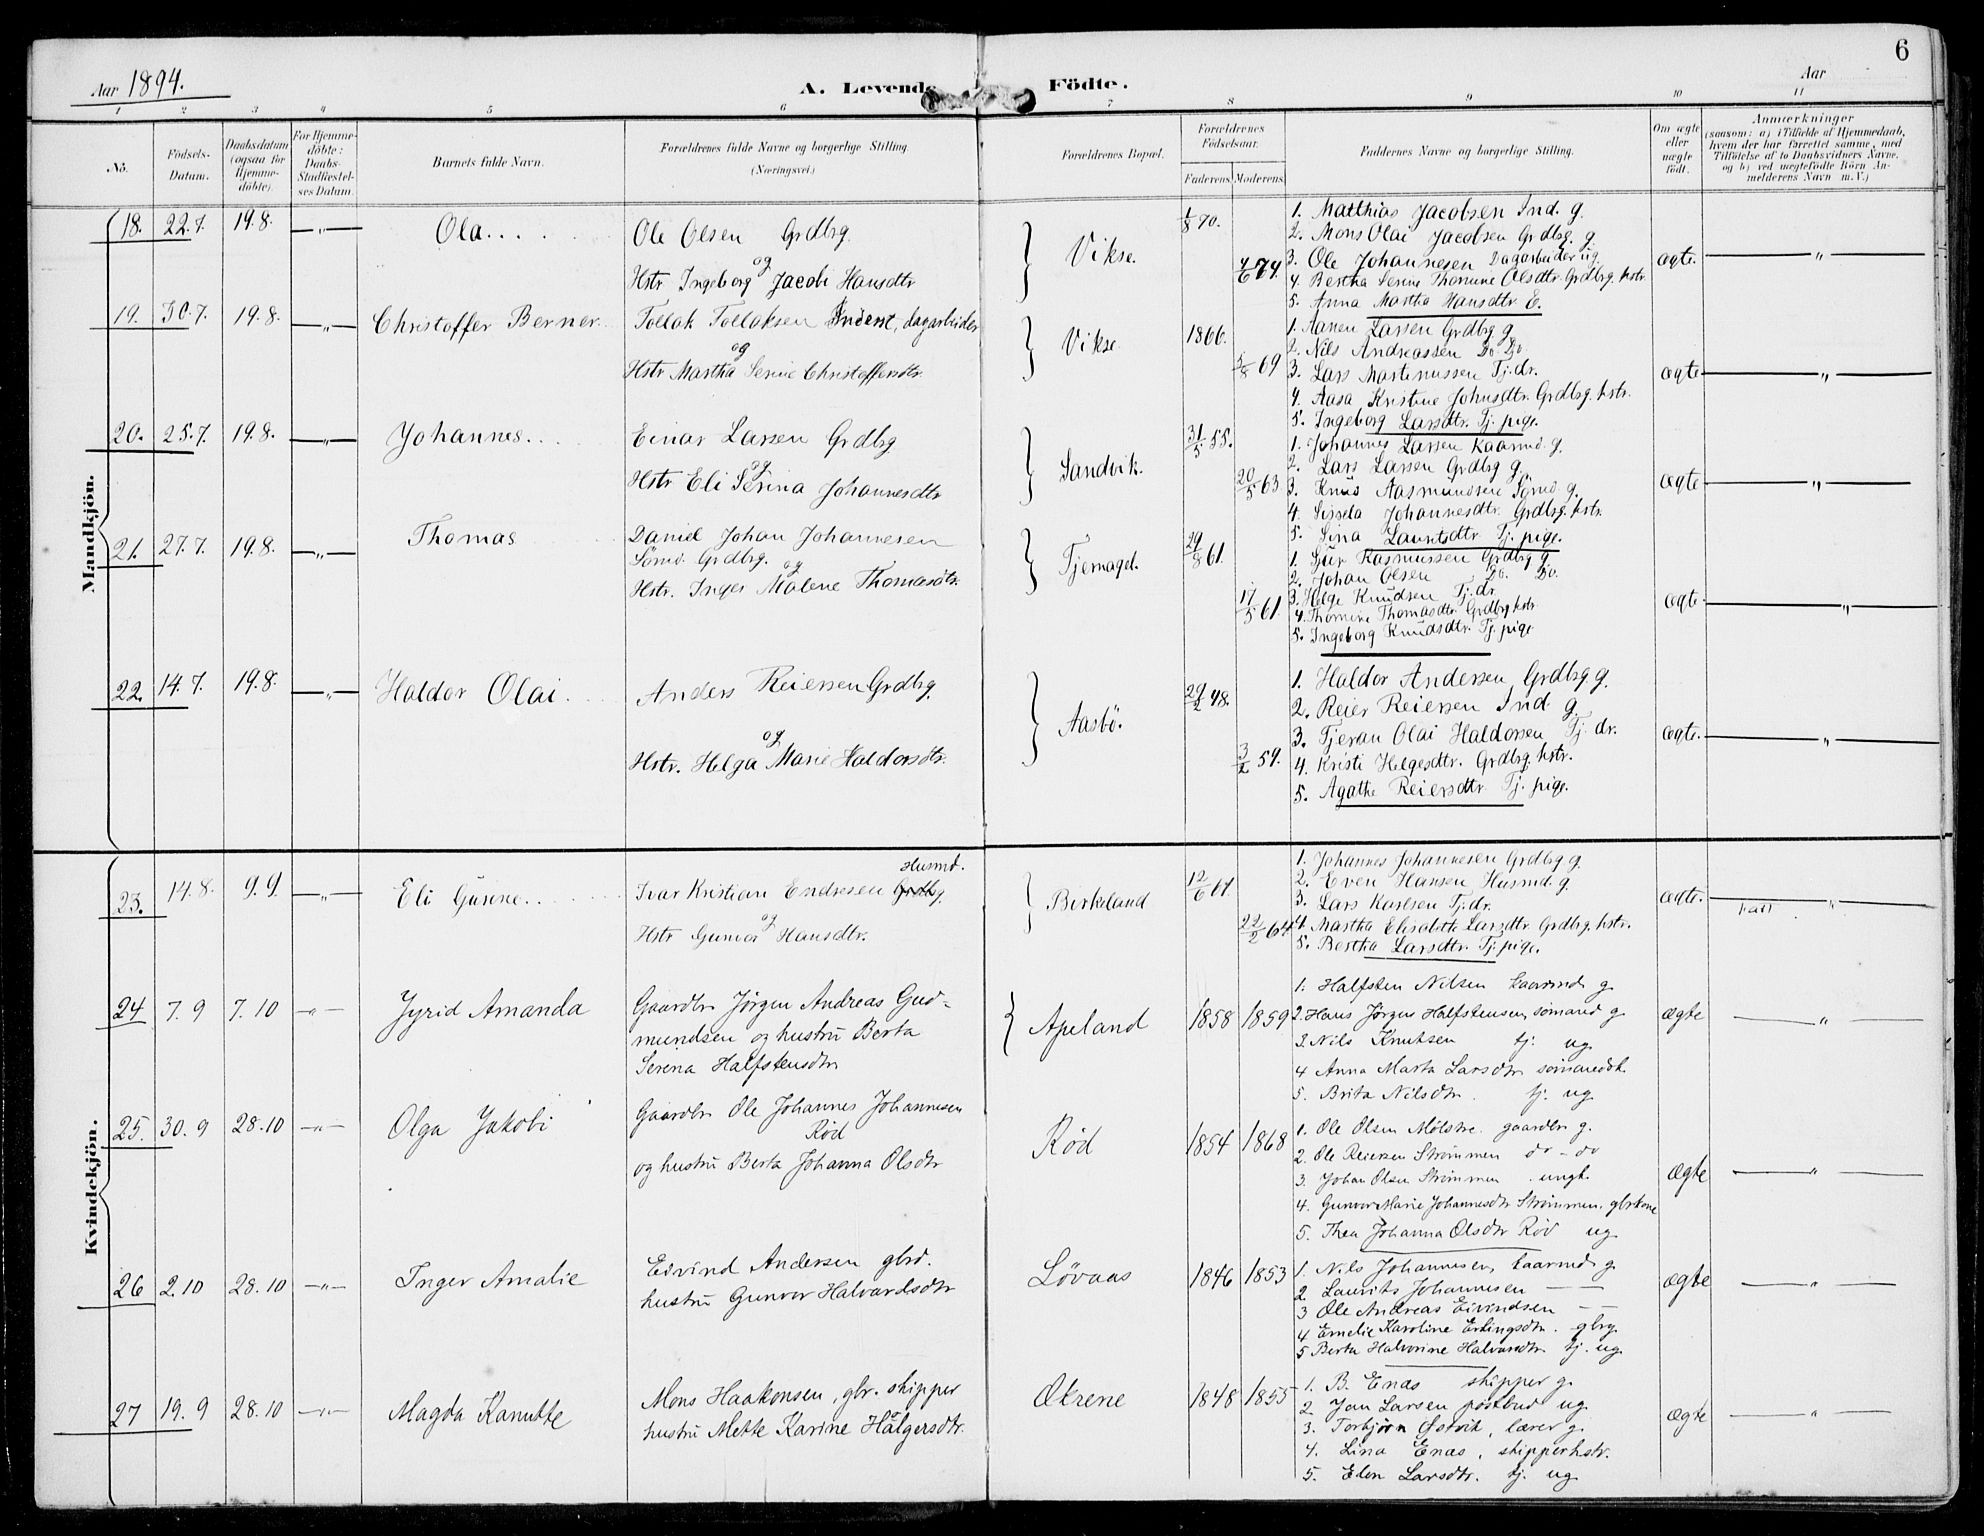 Aar 1894. A. Levende Födte. Aar 6
1 2 3 4 5 6 7 8 9 10 11
No.
Födsels-Datum.
Daabsdatum (ogsaa for Hjemmedöbte).
For Hjemmedöbte: Daabs-Stadfæstelses Datum.
Barnets fulde Navn.
Forældrenes fulde Navne og borgerlige Stilling.
(Næringsvei.)
Forældrenes Bopæl.
Forældrenes Födselsaar.
Faderens. Moderens.
Faddernes Navne og borgerlige Stilling.
Om ægte eller uægte födt.
Anmærkninger
(saasom: a) i Tilfælde af Hjemmedaab, hvem der har forrettet samme, med Tilföielse af to Daabsvidners Navne, og b) ved uægtefödte Börn Anmelderens Navn m. V.)
Mandkjön.
18. 22.7. 19.8. —„— Ola....
Ole Olsen Grdbrg.
og
Hstr Ingeborg Jacobi Hansdtr
Vikse. 1/8 70. 4/6 74.
1. Matthias Jacobsen Ind. g.
2. Mons Olai Jacobsen Grdbrg. g.
3. Ole Johannesen Dagarbeider ug.
4. Bertha Serine Thomine Olsdtr. Grdbrg. hstr.
5. Anna Martha Hansdtr E.
ægte. —„—
19. 30.7. 19.8. —„— Christoffer Berner.
Tollak Tollaksen Inderst, dagarbeider
og
Hstr Martha Serine Christoffersdtr.
Vikse. 1866. 5/8 69
1. Aanen Larsen Grdbrg g.
2. Nils Andreassen Do Do.
3. Lars Martinussen Tj. dr.
4. Aasa Kristine Johnsdtr. Grdbrg. hstr.
5. Ingeborg Larsdtr. Tj. pige.
ægte —„—
20. 25.7. 19.8. —„— Johannes...
Einar Larsen Grdbrg
og
Hstr Eli Serina Johannesdtr
Sandvik. 31/5 55. 20/5 63
1. Johannes Larsen Kaarmd. g.
2. Lars Larsen Grdbrg g.
3. Knud Aasmundsen Sömd g.
4. Sissela Johannesdtr. Grdbrg. hstr.
5. Sina Lauritsdtr Tj. pige.
ægte —„—
21. 27.7. 19.8. —„— Thomas
Daniel Johan Johannesen
Sömd. Grdbrg.
og
Hstr. Inger Malene Thomasdtr.
Tjernagel. 29/8 61. 17/5 61.
1. Sjur Rasmussen Grdbrg g.
2. Johan Olsen Do. Do.
3. Helge Knudsen Tj. dr.
4. Thomine Thomasdtr. Grdbrg hstr.
5. Ingeborg Knudsdtr. Tj. pige
ægte —„—
22. 14.7. 19.8. —„— Haldor Olai.
Anders Reiersen Grdbrg.
og
Hstr. Helga Marie Haldorsdtr.
Aasbö. 29/2 48. 3/2 59.
1. Haldor Andersen Grdbrg g.
2. Reier Reiersen Ind. g.
3. Tjeran Olai Haldorsen Tj. dr.
4. Kristi Helgesdtr. Grdbrg. hstr.
5. Agathe Reiersdtr Tj. pige.
ægte. —„—
Kvindekjön.
23. 14.8. 9.9. —„— Eli Gurine...
Husmd.
Ivar Kristian Endresen Grdbrg.
og
Hstr Gunvor Hansdtr.
Birkeland 12/6 67. 22/2 64
1. Johannes Johannesen Grdbrg g.
2. Even Hansen Husmd. g.
3. Lars Karlsen Tj. dr.
4. Martha Elisabeth Larsdtr Grdbrg. hstr.
5. Bertha Larsdtr. Tj. pige.
ægte. —„—
24 7.9 7.10 —„— Jyrid Amanda
Gaardbr Jørgen Andreas Gud-
mundsen og hustru Berta
Serina Halfstensdtr
Apeland 1858 1859
1. Halfsten Nilsen kaarmd g
2. Hans Jørgen Halfstensen, sømand g
3. Nils Knutsen tj. ug.
4 Anna Marta Larsdtr sømandsk.
5. Brita Nilsdtr. tj. ug.
ægte —„—
25. 30.9 28.10 —„— Olga Jakobi
Gaardbr Ole Johannes Johannesen
Rød
og hustru Berta Johanna Olsdtr
Rød 1854 1868
1. Ole Olsen Mølstre. gaardbr g.
2. Ole Reiersen Strømmen do - do
3. Johan Olsen Strømmen. ungk.
4. Gunvor Marie Johannesdtr Strømmen, gbrkone
5. Thea Johanna Olsdtr Rød ug.
ægte —„—
26 2.10 28.10 —„— Inger Amalie
Eivind Andersen gbrd.
hustru Gunvor Halvardsdtr
Løvaas 1846 1853
1. Nils Johannesen, kaarmd g.
2. Laurits Johannesen — —
3 Ole Andreas Eivindsen — —
4 Emelie Karoline Erlingsdtr. gbrg.
5 Berta Halvorine Halvarsdtr tj. ug.
ægte —„—
27 19.9 28.10 —„— Magda Kanutte
Mons Haakonsen, gbr. skipper
hustru Mette Karine Halgersdtr.
Økrene 1848 1855
1. B. Enas skipper g.
2 Jan Larsen postbud ug.
3. Torbjørn Østvik, lærer g.
4. Lina Enas, skipperhstr.
5. Elen Larsdtr. tj. ug.
ægte —„—